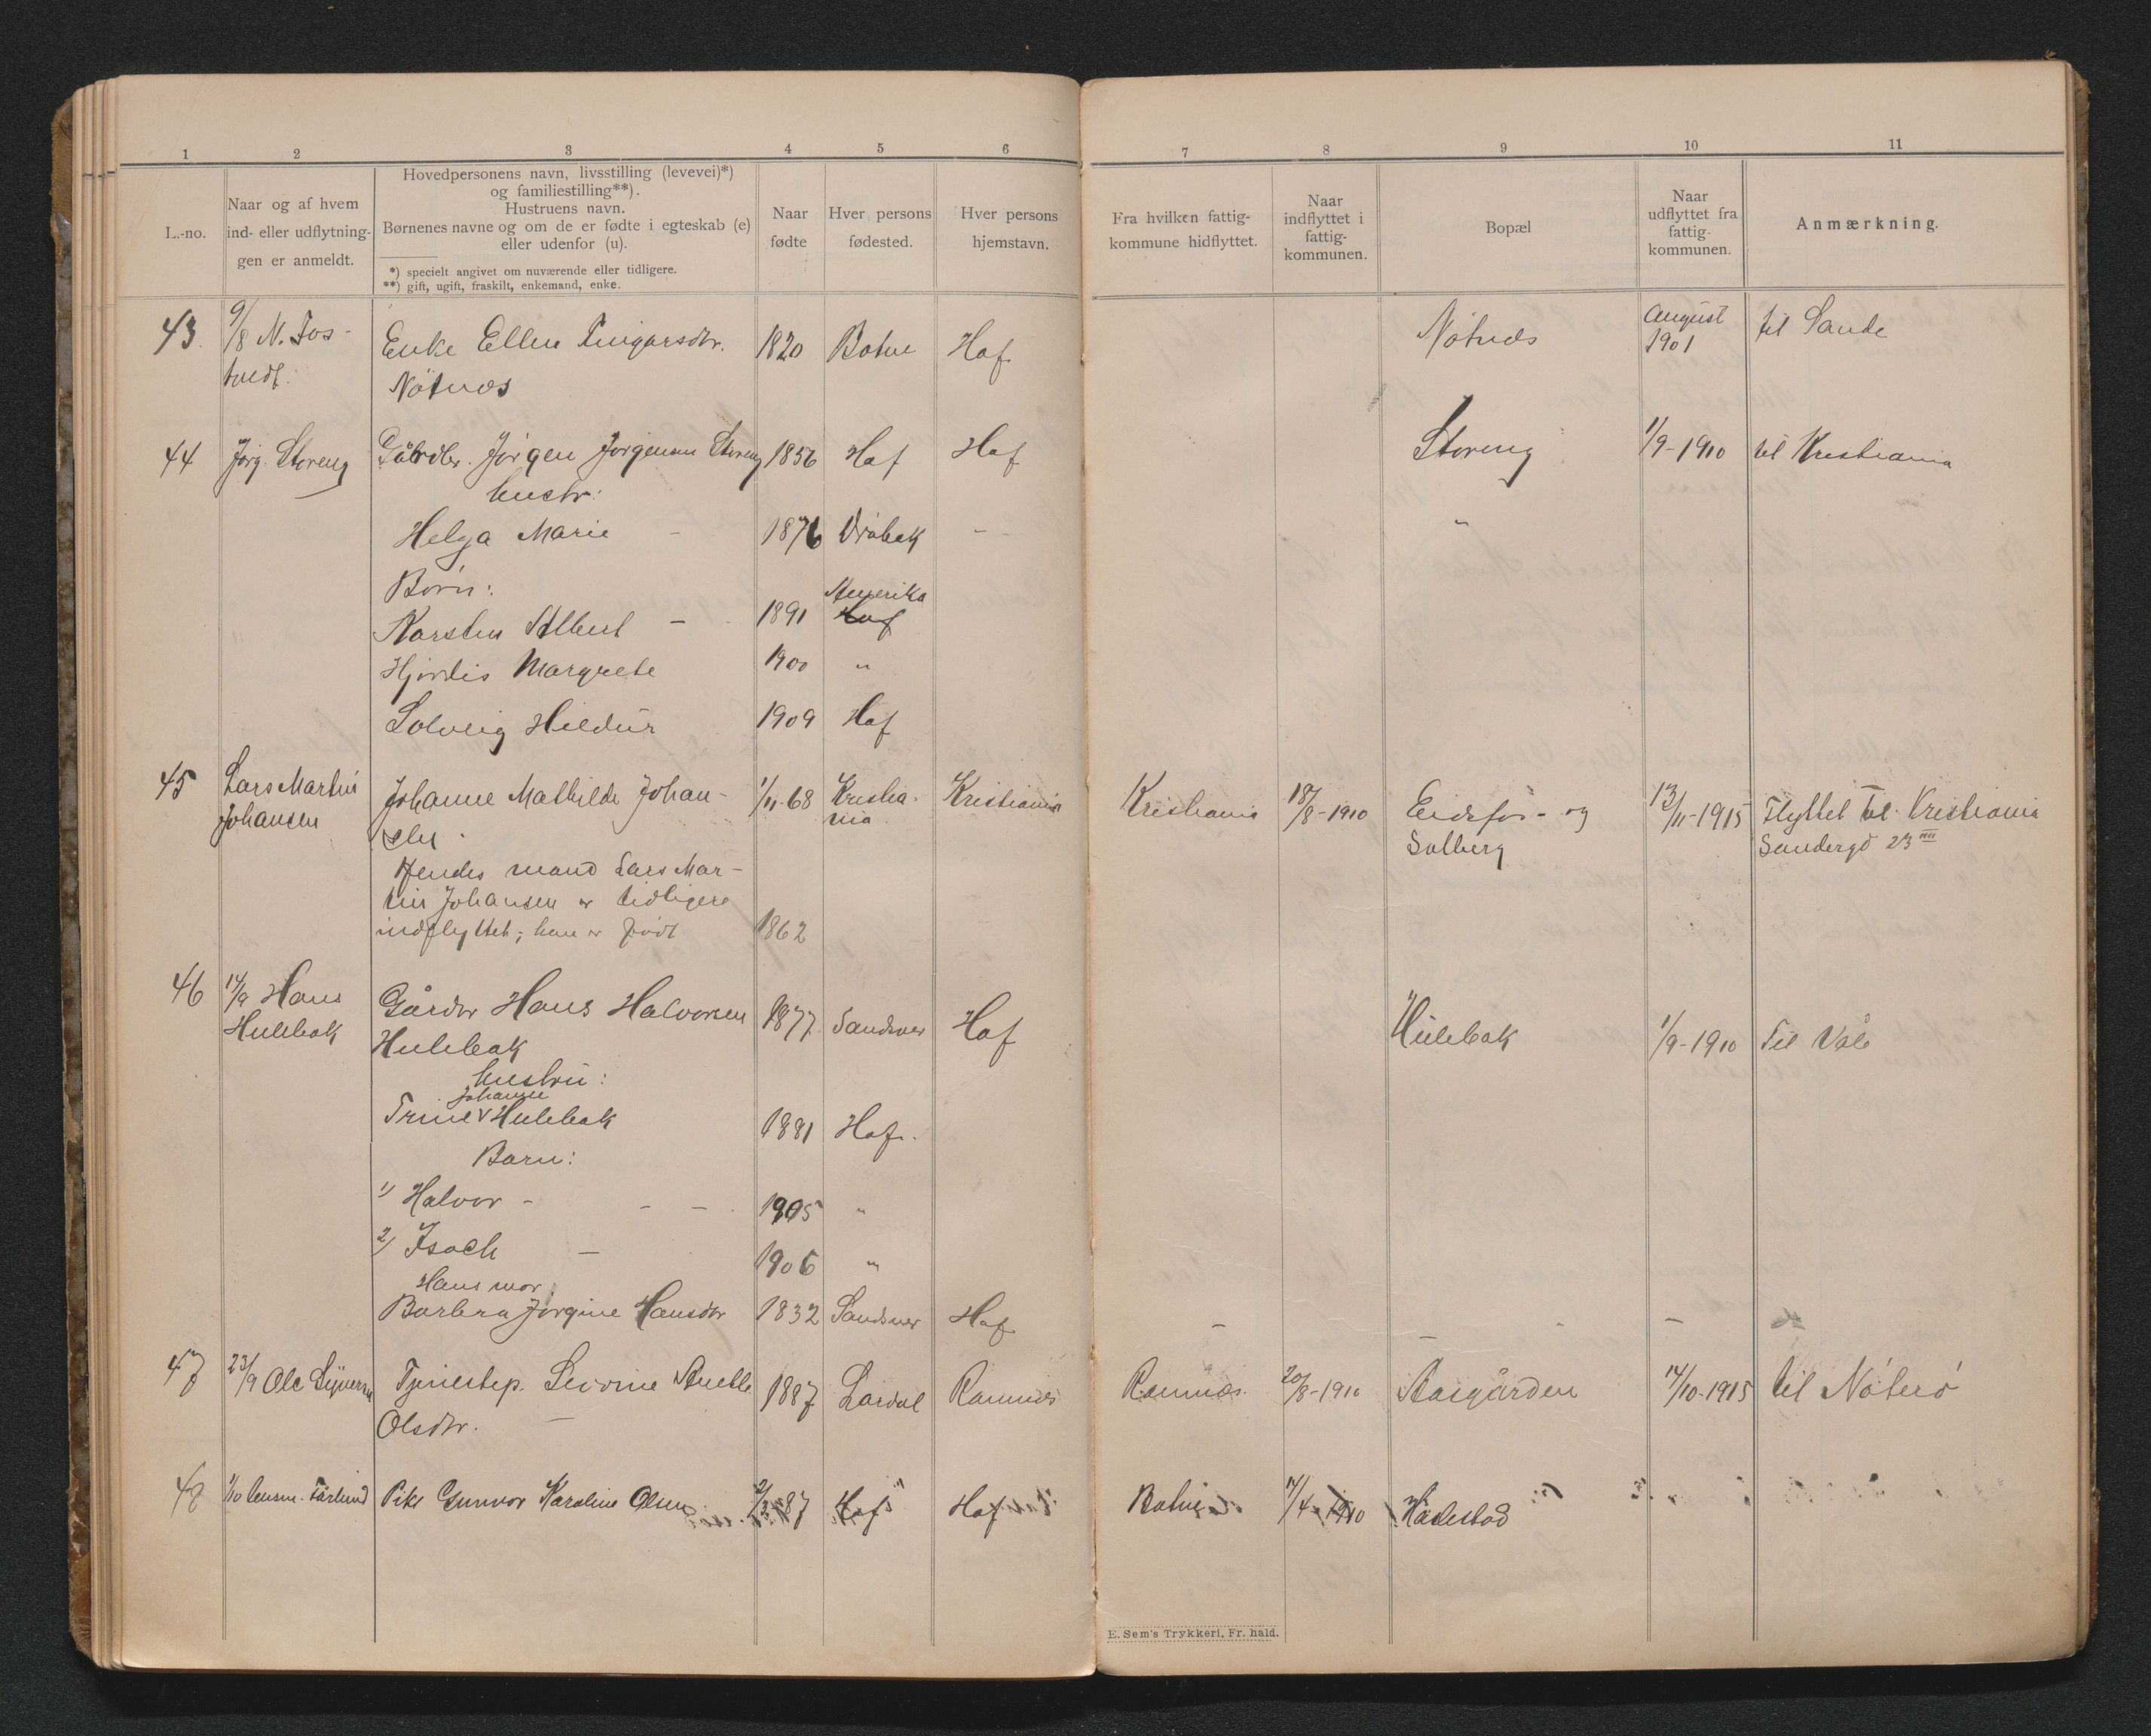 1 2 3 4 5 6 7 8 9 10 11
L.-no.
Naar og af hvem
ind- eller udflytnin-
gen er anmeldt.
Hovedpersonens navn, livsstilling (levevei)*)
og familiestilling**).
Hustruens navn.
Børnenes navne og om de er fødte i egteskab (e)
eller udenfor (u).
*) specielt angivet om nuværende eller tidligere.
**) gift, ugift, fraskilt, enkemand, enke.
Naar
fødte
Hver persons
fødested.
Hver persons
hjemstavn.
Fra hvilken fattig-
kommune hidflyttet.
Naar
indflyttet i
fattig-
kommunen.
Bopæl
Naar
udflyttet fra
fattig-
kommunen.
Anmærkning.
43. 9/8 N. Fos- Enke Ellen 1820 Botne Hof Nötnes August til Sande
tvedt. Nötnæs 1901
44 Jörg. Storeng Gårdbr. Jörgen Jörgensen Storeng 1856 Hof Hof Storeng 1/9-1910 til Kristiania
hustr:
Helga Marie - 1876 Dröbak - "
Börn: Amerika
Karsten Albert - 1891 Hof
Hjördis Margrete 1900 "
Solveig Hildur 1909 Hof
45 Lars Martin Johanne Mathilde Johan- 1/11-68 Kristia- Kristiania Kristiania 18/8-1910 Eidsfos- og 13/11-1915 Flyttet til Kristiania
Johansen sen. nia Solberg Sandergd 23 III
Hendes mand Lars Mar-
tin Johansen er tidligere
indflyttet; han er född 1862
46 14/9 Hans Gårdbr Hans Halvorsen 1877 Sandsver Hof Hulebak 1/9-1910 Til Våle
Hulebak Hulebak
hustru:
Johanne
Trine v Hulebak 1881 Hof.
Barn:
1) Halvor - - - 1905 "
2) Isach - 1906 "
Hans mor
Barbra Jörgine Hansdtr 1832 Sandsver Hof - - - -
47 23/9 Ole Tjenestep. Anette 1887 Lardal Ramnes Ramnæs 20/8-1910 Aasgården 14/10-1915 til Nöterö
Olsdtr. -
48 1/10 lensm. Pike Gunvor Karoline Olsen 2/3-87 Hof Hof Botne 14/4-1910 Haslestad
E. Sem's Trykkeri, Fr. hald.